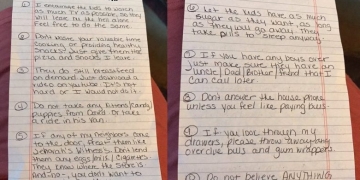 ① I encourage the kids to watch
as much TV as possible, so they
will leave me the hell alone.
Feel free to do the same.
② Don't waste your valuable time
cooking or providing healthy
snacks! Just give them the
pills and snacks I leave
③ Thou do still breastfeed
on demand. Just download a
video on youtube. It's not
hard, or I would not do it.
④ Do not take any kittens/candy/
puppies from Covid. Or take
a ride in his van.
⑤ If any of my neighbors come
to the door, treat them like
Jehovah's Witness. Don't lend
them any eggs/pills/cigarettes.
They know where the store is
and no-, you don't want to
⑥ Let the kids have as much
sugar as they want, as long
as they will go away. They
take pills to sleep anyway.
⑦ If you have any boys over
just make sure they have an
Uncle/Dad/Brother/friend that I
can call later
⑧ Don't answer the house phone
unless you feel like paying bills.
⑨ If you look through my
drawers, please throw away any
overdue bills and gum wrappers.
⑩ Do not believe ANYTHING